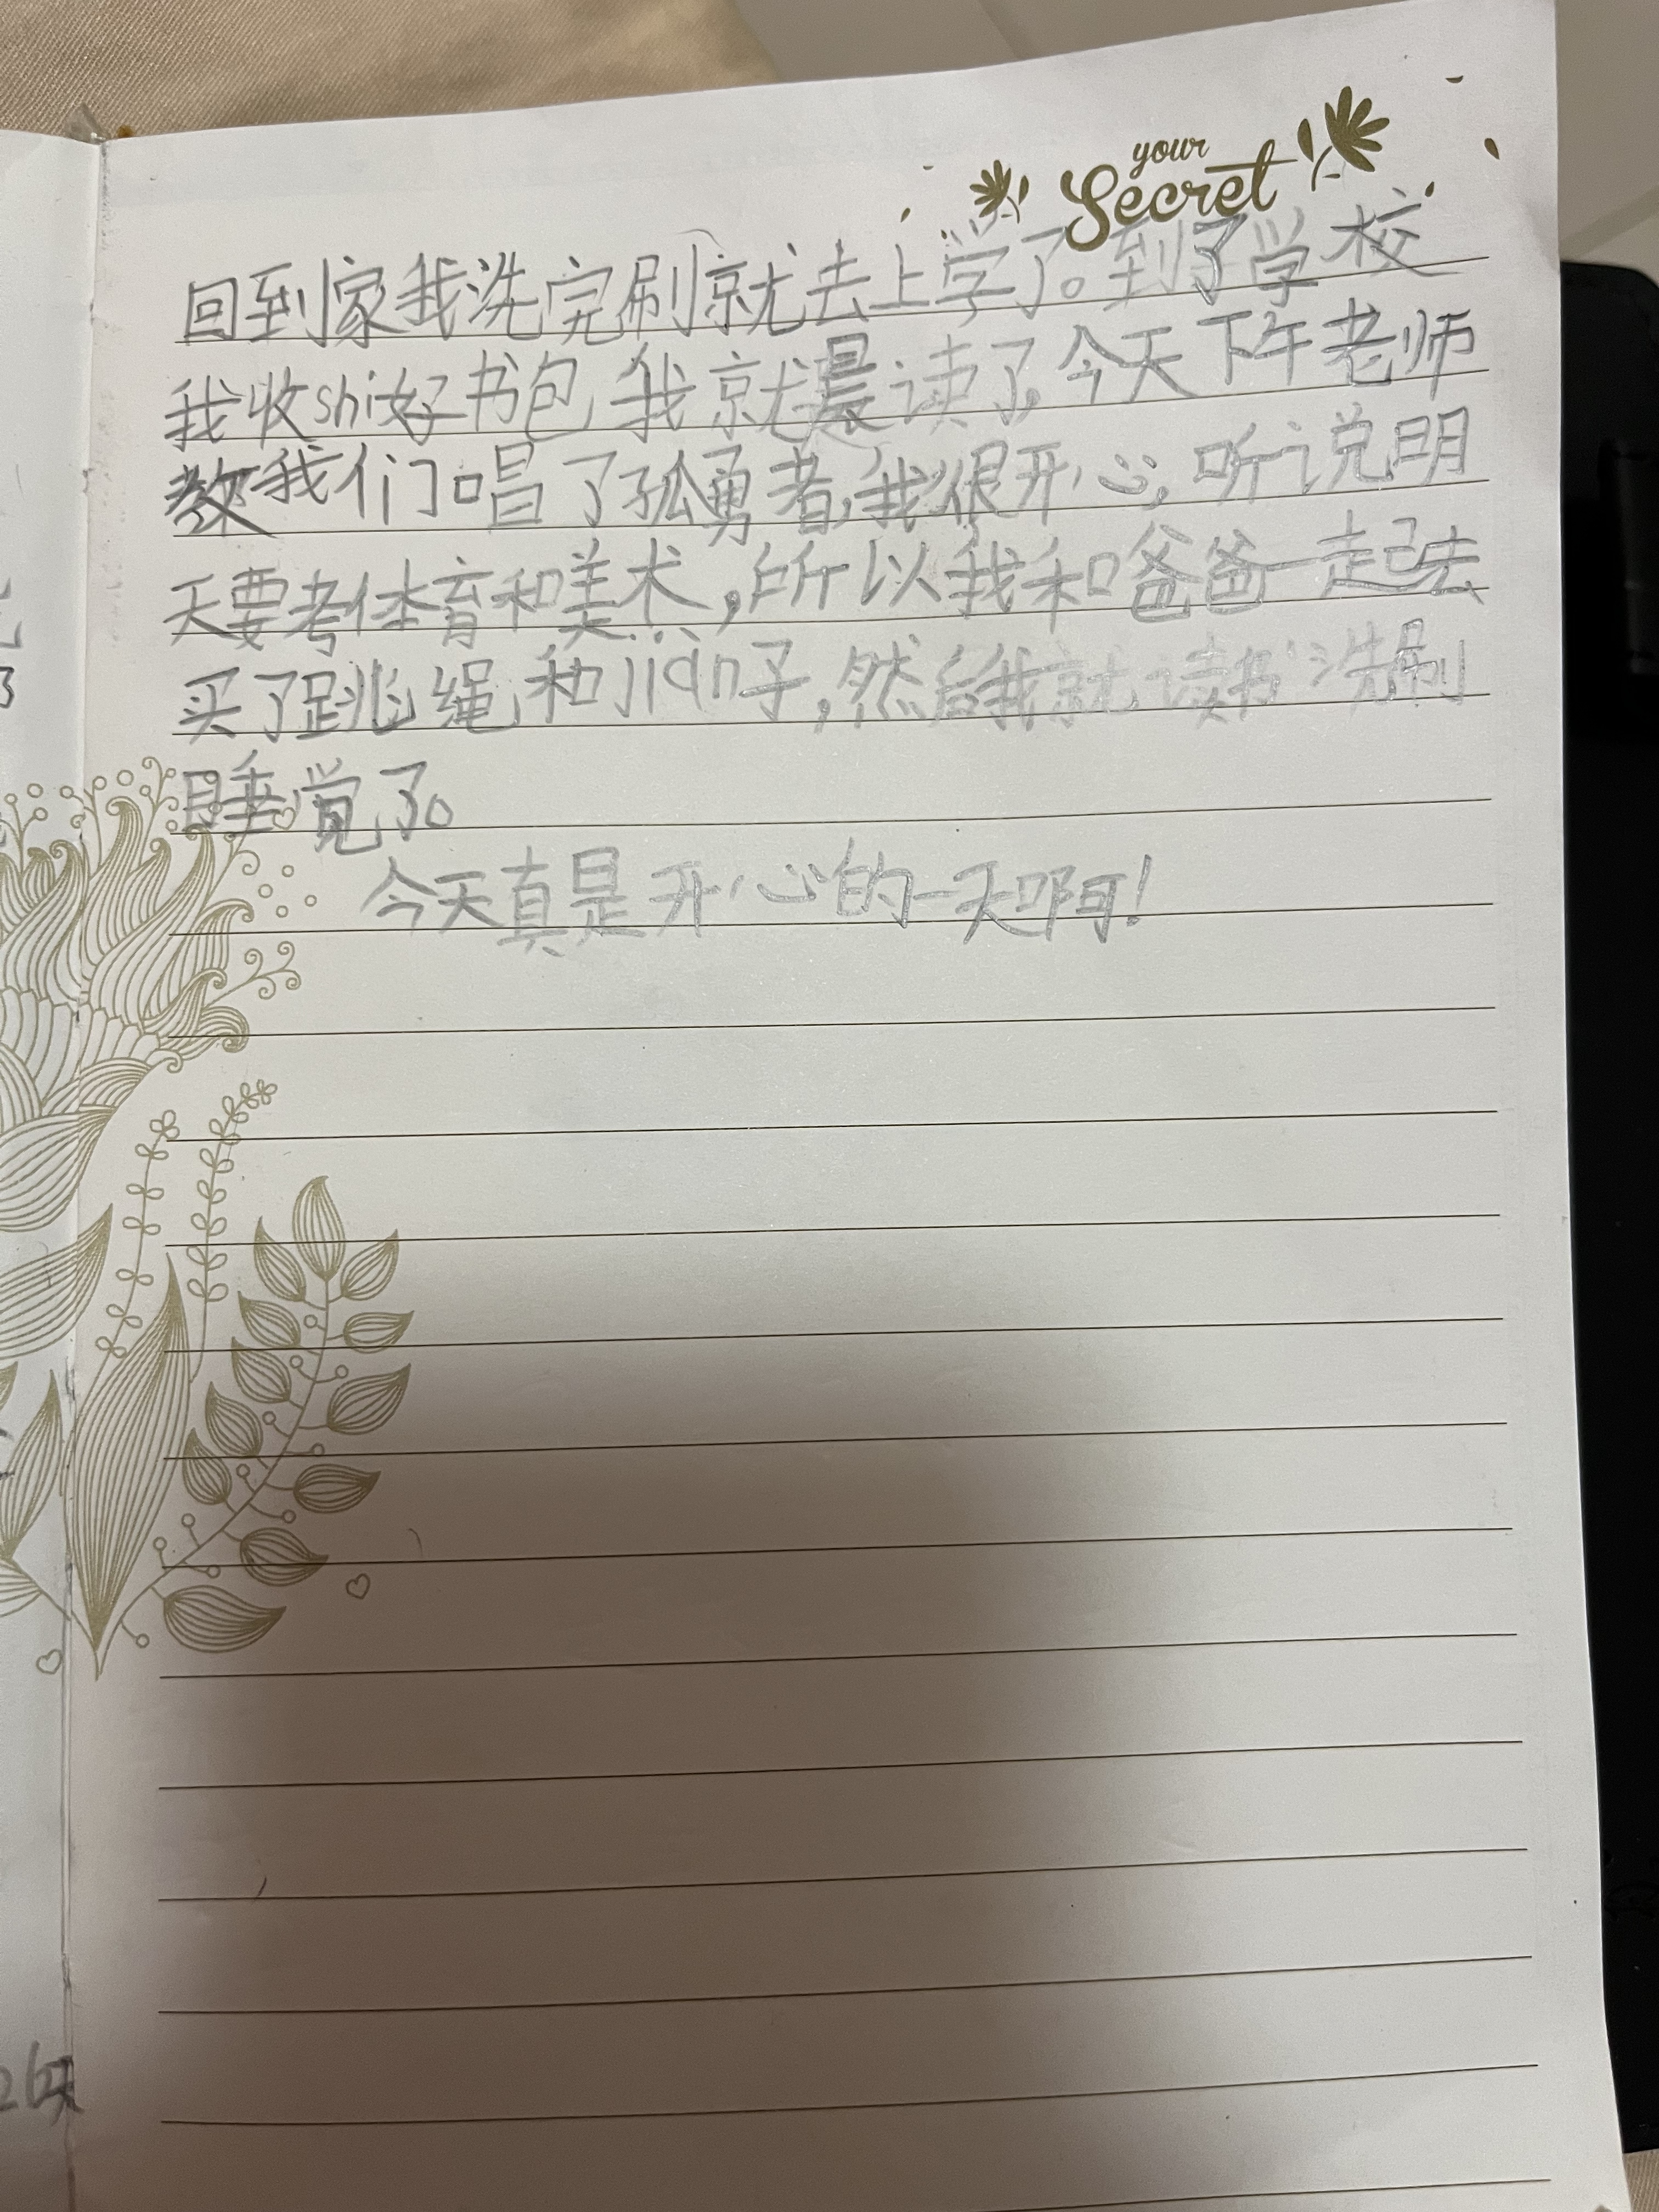 your
Secret
回到家我洗完刷就去上学了。到了学校
我收shi好书包,我就晨读了,今天下午老师
教我们唱了孤勇者,我很开心,听说明
天要考体育和美术,所以我和爸爸一起去
买了跳绳,和jiàn子,然后我就读书洗刷
睡觉了。
今天真是开心的一天啊!